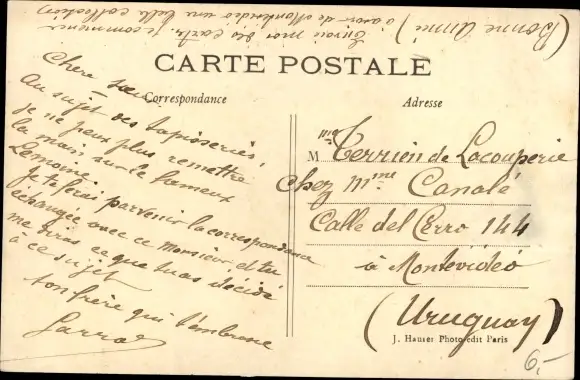 (Bonne année) Envoie moi des cartes, je commence
à avoir de Montévidéo une belle collection
CARTE POSTALE
Correspondance
Chère sœur
Au sujet des tapisseries,
je ne peux plus remettre
la main sur le fameux
Lemoine.
Je te ferai parvenir la correspondance
échangée avec ce Monsieur, et tu
me diras ce que tu as décidé
à ce sujet
ton frère qui t'embrasse
Adresse
M me Terrien de Lacouperie
Chez Mme Canalé
Calle del Cerro 144
à Montévidéo
(Uruguay)
J. Hauser Photo-édit Paris
6,-